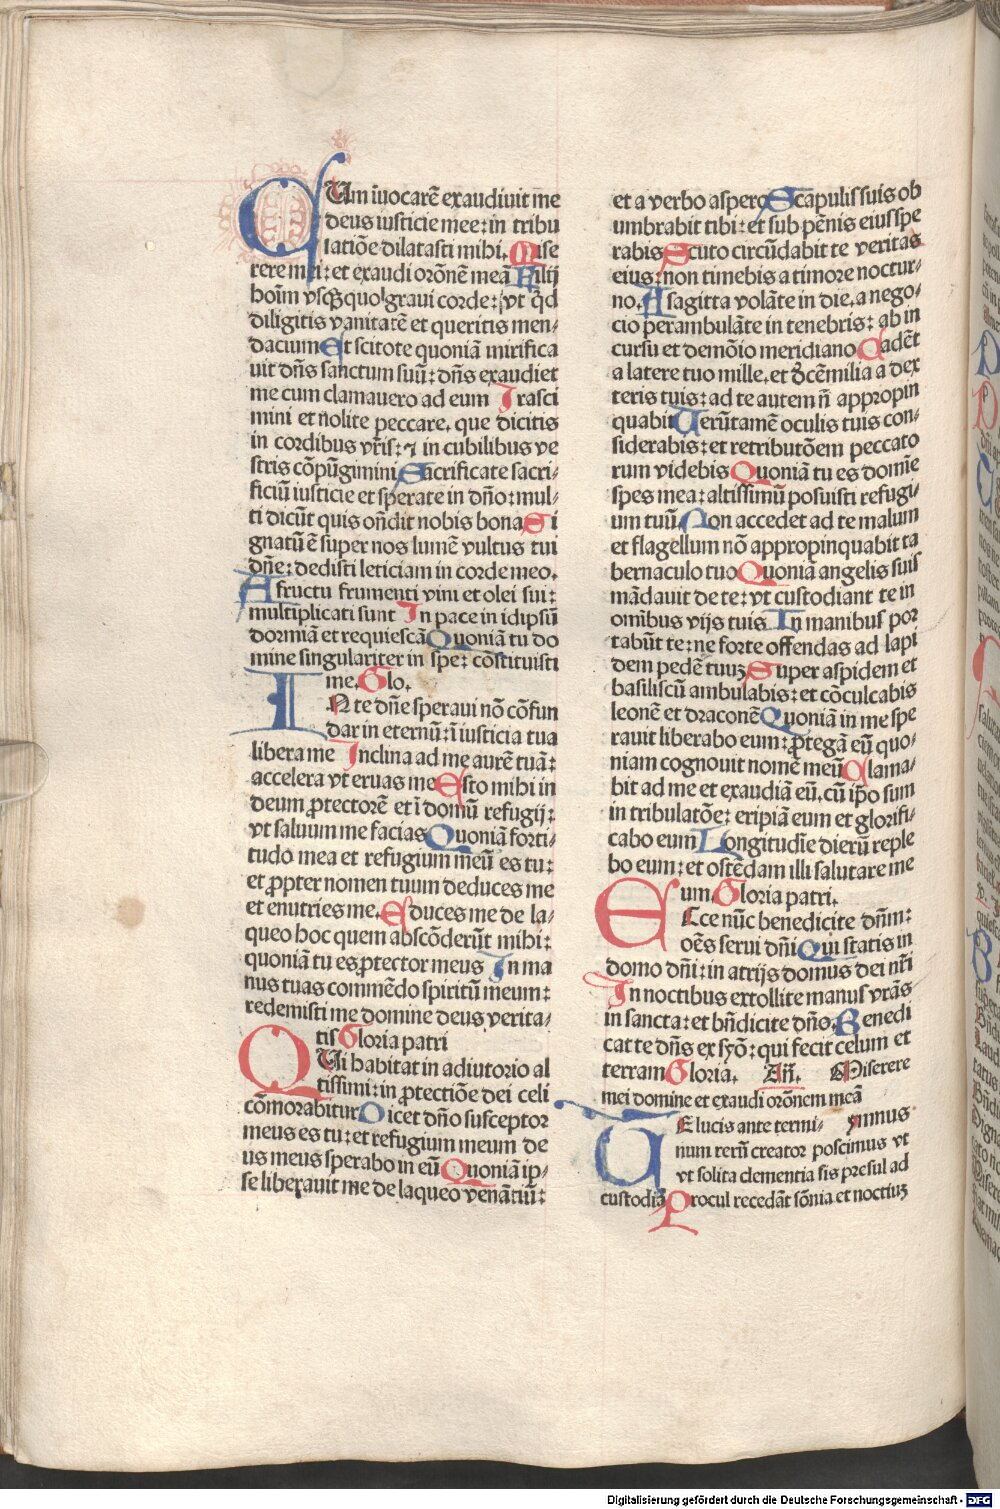 CUm īuocarē exaudiuit me
deus iusticie mee: in tribu
latiōe dilatasti mihi. Mise
rere mei: et exaudi orōnē meā Filij
hoīm vsq̄quo graui corde: vt qd
diligitis vanitatē et queritis men-
dacium Et scitote quoniā mirifica
uit dn̄s sanctum suū: dn̄s exaudiet
me cum clamauero ad eum Irasci
mini et nolite peccare. que dicitis
in cordibus vr̄is: ⁊ in cubilibus ve
stris cōpūgimini Sacrificate sacri-
ficiū iusticie et sperate in dn̄o: mul-
ti dicūt quis on̄dit nobis bona Si
gnatū ē super nos lumē vultus tui
dn̄e: dedisti leticiam in corde meo.
A fructu frumenti vini et olei sui:
multiplicati sunt In pace in idipsū
dormiā et requiescā Quoniā tu do
mine singulariter in spe: cōstituisti
me. Glo.
IN te dn̄e speraui nō cōfun
dar in eternū: ī iusticia tua
libera me Inclina ad me aurē tuā:
accelera vt eruas me Esto mihi in
deum ꝓtectorē et ī domū refugij:
vt saluum me facias Quoniā forti-
tudo mea et refugium meū es tu:
et ꝓpter nomen tuum deduces me
et enutries me. Educes me de la-
queo hoc quem abscōderūt mihi:
quoniā tu es ꝓtector meus In ma
nus tuas commēdo spiritū meum:
redemisti me domine deus verita-
tis Gloria patri
QUi habitat in adiutorio al
tissimi: in ꝓtectiōe dei celi
cōmorabitur Dicet dn̄o susceptor
meus es tu: et refugium meum de
us meus sperabo in eū Quoniā ip-
se liberauit me de laqueo venātiū:
et a verbo aspero Scapulis suis ob
umbrabit tibi: et sub pēnis eius spe
rabis Scuto circūdabit te veritas
eius: non timebis a timore noctur-
no. A sagitta volāte in die. a nego-
cio perambulāte in tenebris: ab in
cursu et demōio meridiano Cadēt
a latere tuo mille. et dēcē milia a dex
teris tuis: ad te autem n̄ appropin
quabit Uerūtamē oculis tuis con-
siderabis: et retributōem peccato
rum videbis Quoniā tu es domīe
spes mea: altissimū posuisti refugi-
um tuū. Non accedet ad te malum
et flagellum nō appropinquabit ta
bernaculo tuo Quoniā angelis suis
mādauit de te: vt custodiant te in
omībus vijs tuis In manibus por
tabūt te: ne forte offendas ad lapi
dem pedē tuuꝫ Super aspidem et
basiliscū ambulabis: et cōculcabis
leonē et draconē Quoniā in me spe
rauit liberabo eum: ꝓtegā eū quo-
niam cognouit nomē meū Clama-
bit ad me et exaudiā eū. cū ip̄o sum
in tribulatōe: eripiā eum et glorifi-
cabo eum Longitudīe dierū reple
bo eum: et ostēdam illi salutare me
um. Gloria patri.
ECce nūc benedicite dn̄m:
oēs serui dn̄i Qui statis in
domo dn̄i: in atrijs domus dei nr̄i
In noctibus extollite manus vrās
in sancta: et bn̄dicite dn̄o. Benedi
cat te dn̄s ex syō: qui fecit celum et
terram Gloria. An̄. Miserere
mei domine et exaudi orōnem meā
TE lucis ante termi- ymnus
num rerū creator poscimus vt
vt solita clementia sis presul ad
custodiā Procul recedāt sōnia et noctiuꝫ
Digitalisierung gefördert durch die Deutsche Forschungsgemeinschaft - DFG